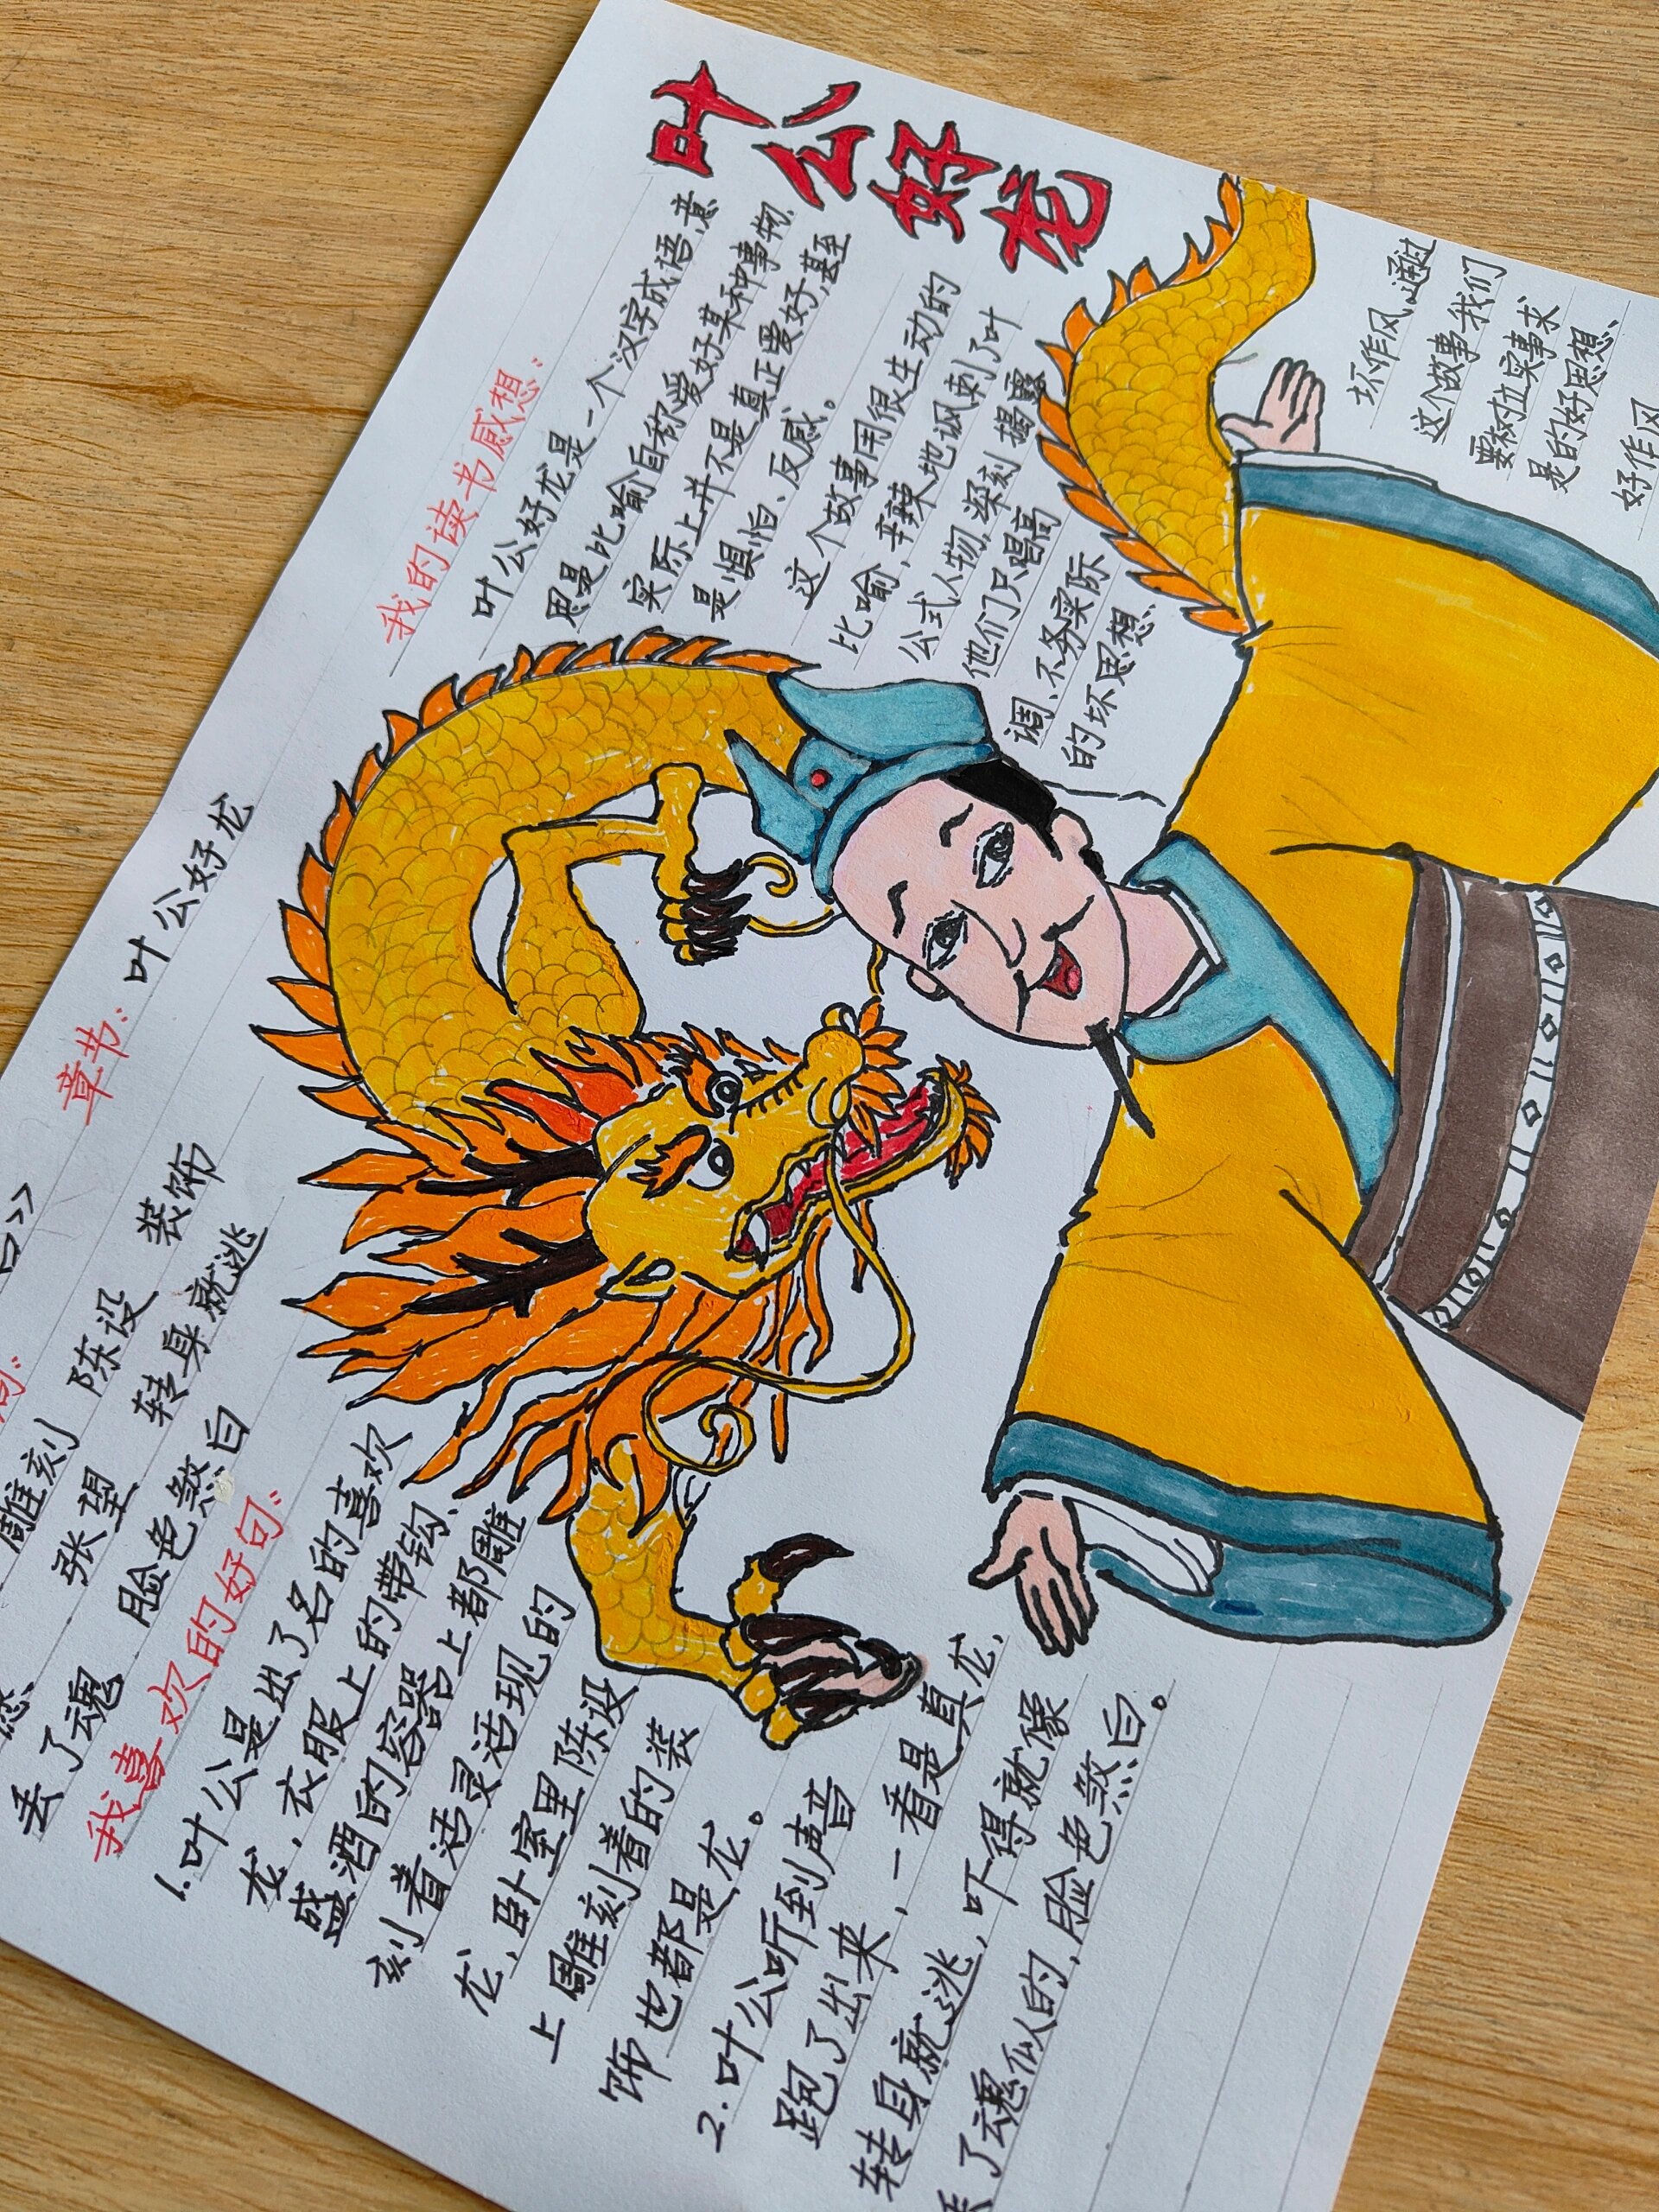 叶公好龙
章书:
叶公好龙
雕刻 陈设 装饰
张望 转身就逃
丢了魂 脸色煞白
我喜欢的好句:
1.叶公是出了名的喜欢
龙,衣服上的带钩、
盛酒的容器上都雕
刻着活灵活现的
龙,卧室里陈设
上雕刻着的装
饰也都是龙。
2.叶公听到声音
跑了出来,一看是真龙,
转身就逃,吓得就像
丢了魂似的,脸色煞白。
我的读书感想:
叶公好龙是一个汉字成语,意
思是比喻自称爱好某种事物,
实际上并不是真正爱好,甚至
是惧怕、反感。
这个故事用很生动的
比喻,辛辣地讽刺了叶
公式人物,深刻揭露
他们只唱高
调、不务实际
的坏思想、
坏作风,通过
这个故事我们
要树立实事求
是的好思想、
好作风